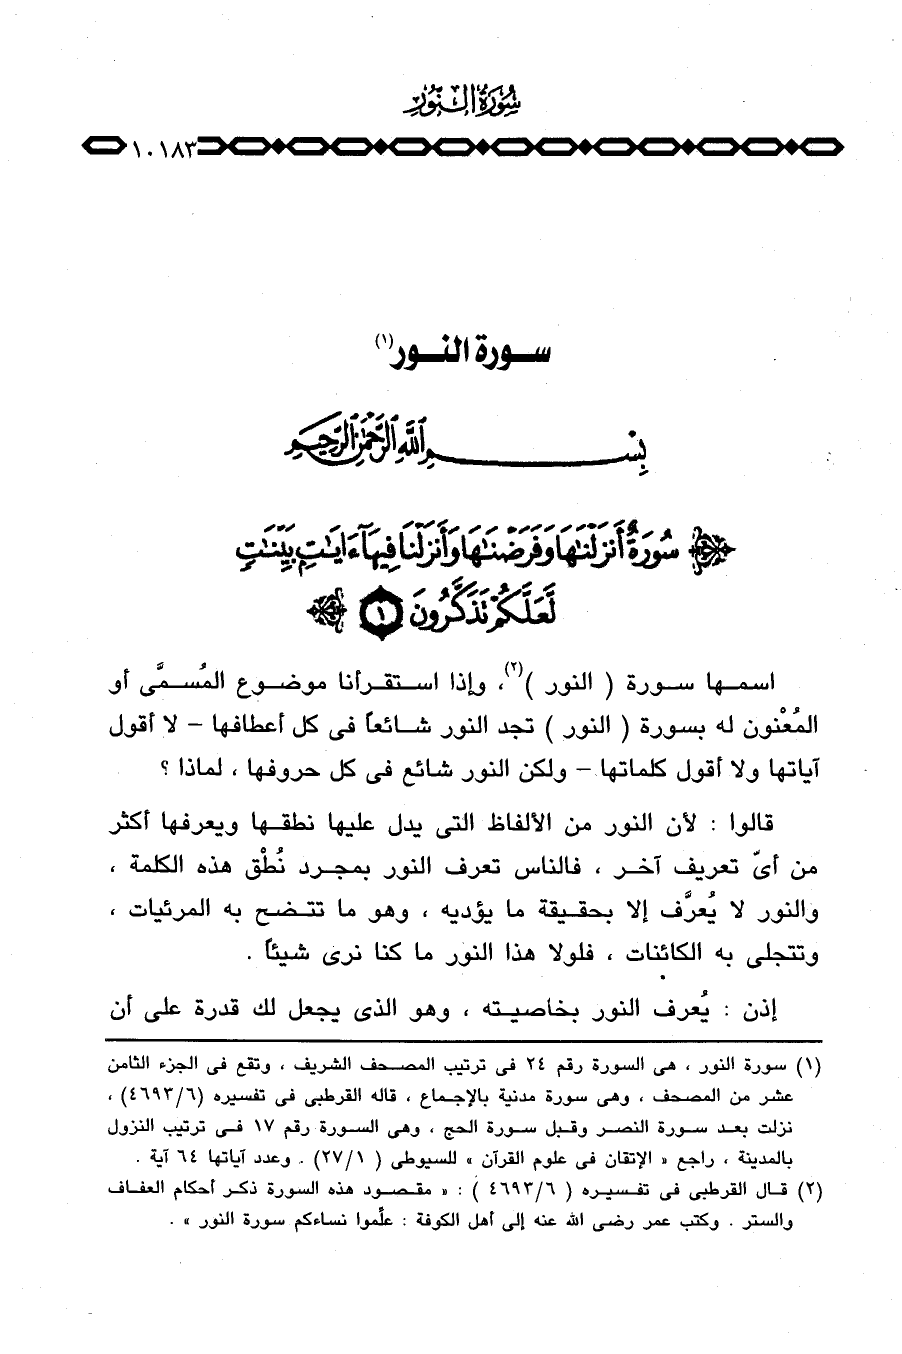 سُورَةُ النُّور
١٠١٨٣
ســورة النــور(١)
بِسْمِ اللَّهِ الرَّحْمَٰنِ الرَّحِيمِ
سُورَةٌ أَنزَلْنَٰهَا وَفَرَضْنَٰهَا وَأَنزَلْنَا فِيهَآ ءَايَٰتٍۭ بَيِّنَٰتٍ
لَّعَلَّكُمْ تَذَكَّرُونَ ١
اسمـهـا سـورة ( النور )(٢)، وإذا اسـتقـرأنا موضـوع المُسـمَّى أو
المُعْنون له بسورة ( النور ) تجد النور شـائعاً فى كل أعطافها – لا أقول
آياتها ولا أقول كلماتها – ولكن النور شائع فى كل حروفها ، لماذا ؟
قالوا : لأن النور من الألفاظ التى يدل عليها نطقـها ويعرفها أكثر
من أىِّ تعريف آخـر ، فالناس تعرف النور بمجرد نُطْق هذه الكلمة ،
والنور لا يُعرَّف إلا بحقـيقة ما يؤديه ، وهو ما تتـضح به المرئيات ،
وتتجلى به الكائنات ، فلولا هذا النور ما كنا نرى شيئاً .
إذن : يُعرف النور بخاصيـته ، وهو الذى يجعل لك قدرة على أن
(١) سورة النور ، هى السورة رقم ٢٤ فى ترتيب المصـحف الشريف ، وتقع فى الجزء الثامن
عشر من المصحف ، وهى سورة مدنية بالإجماع ، قاله القرطبى فى تفسيره (٤٦٩٣/٦) ،
نزلت بعـد سـورة النصـر وقبل سـورة الحج ، وهى السـورة رقم ١٧ فـى ترتيب النزول
بالمدينة ، راجع « الإتقان فى علوم القرآن » للسيوطى ( ٢٧/١) . وعدد آياتها ٦٤ آية .
(٢) قـال القرطبى فى تفـسيـره ( ٤٦٩٣/٦ ) : « مقـصود هذه السورة ذكـر أحكام العفـاف
والستر . وكتب عمر رضى الله عنه إلى أهل الكوفة : علِّموا نساءكم سورة النور » .